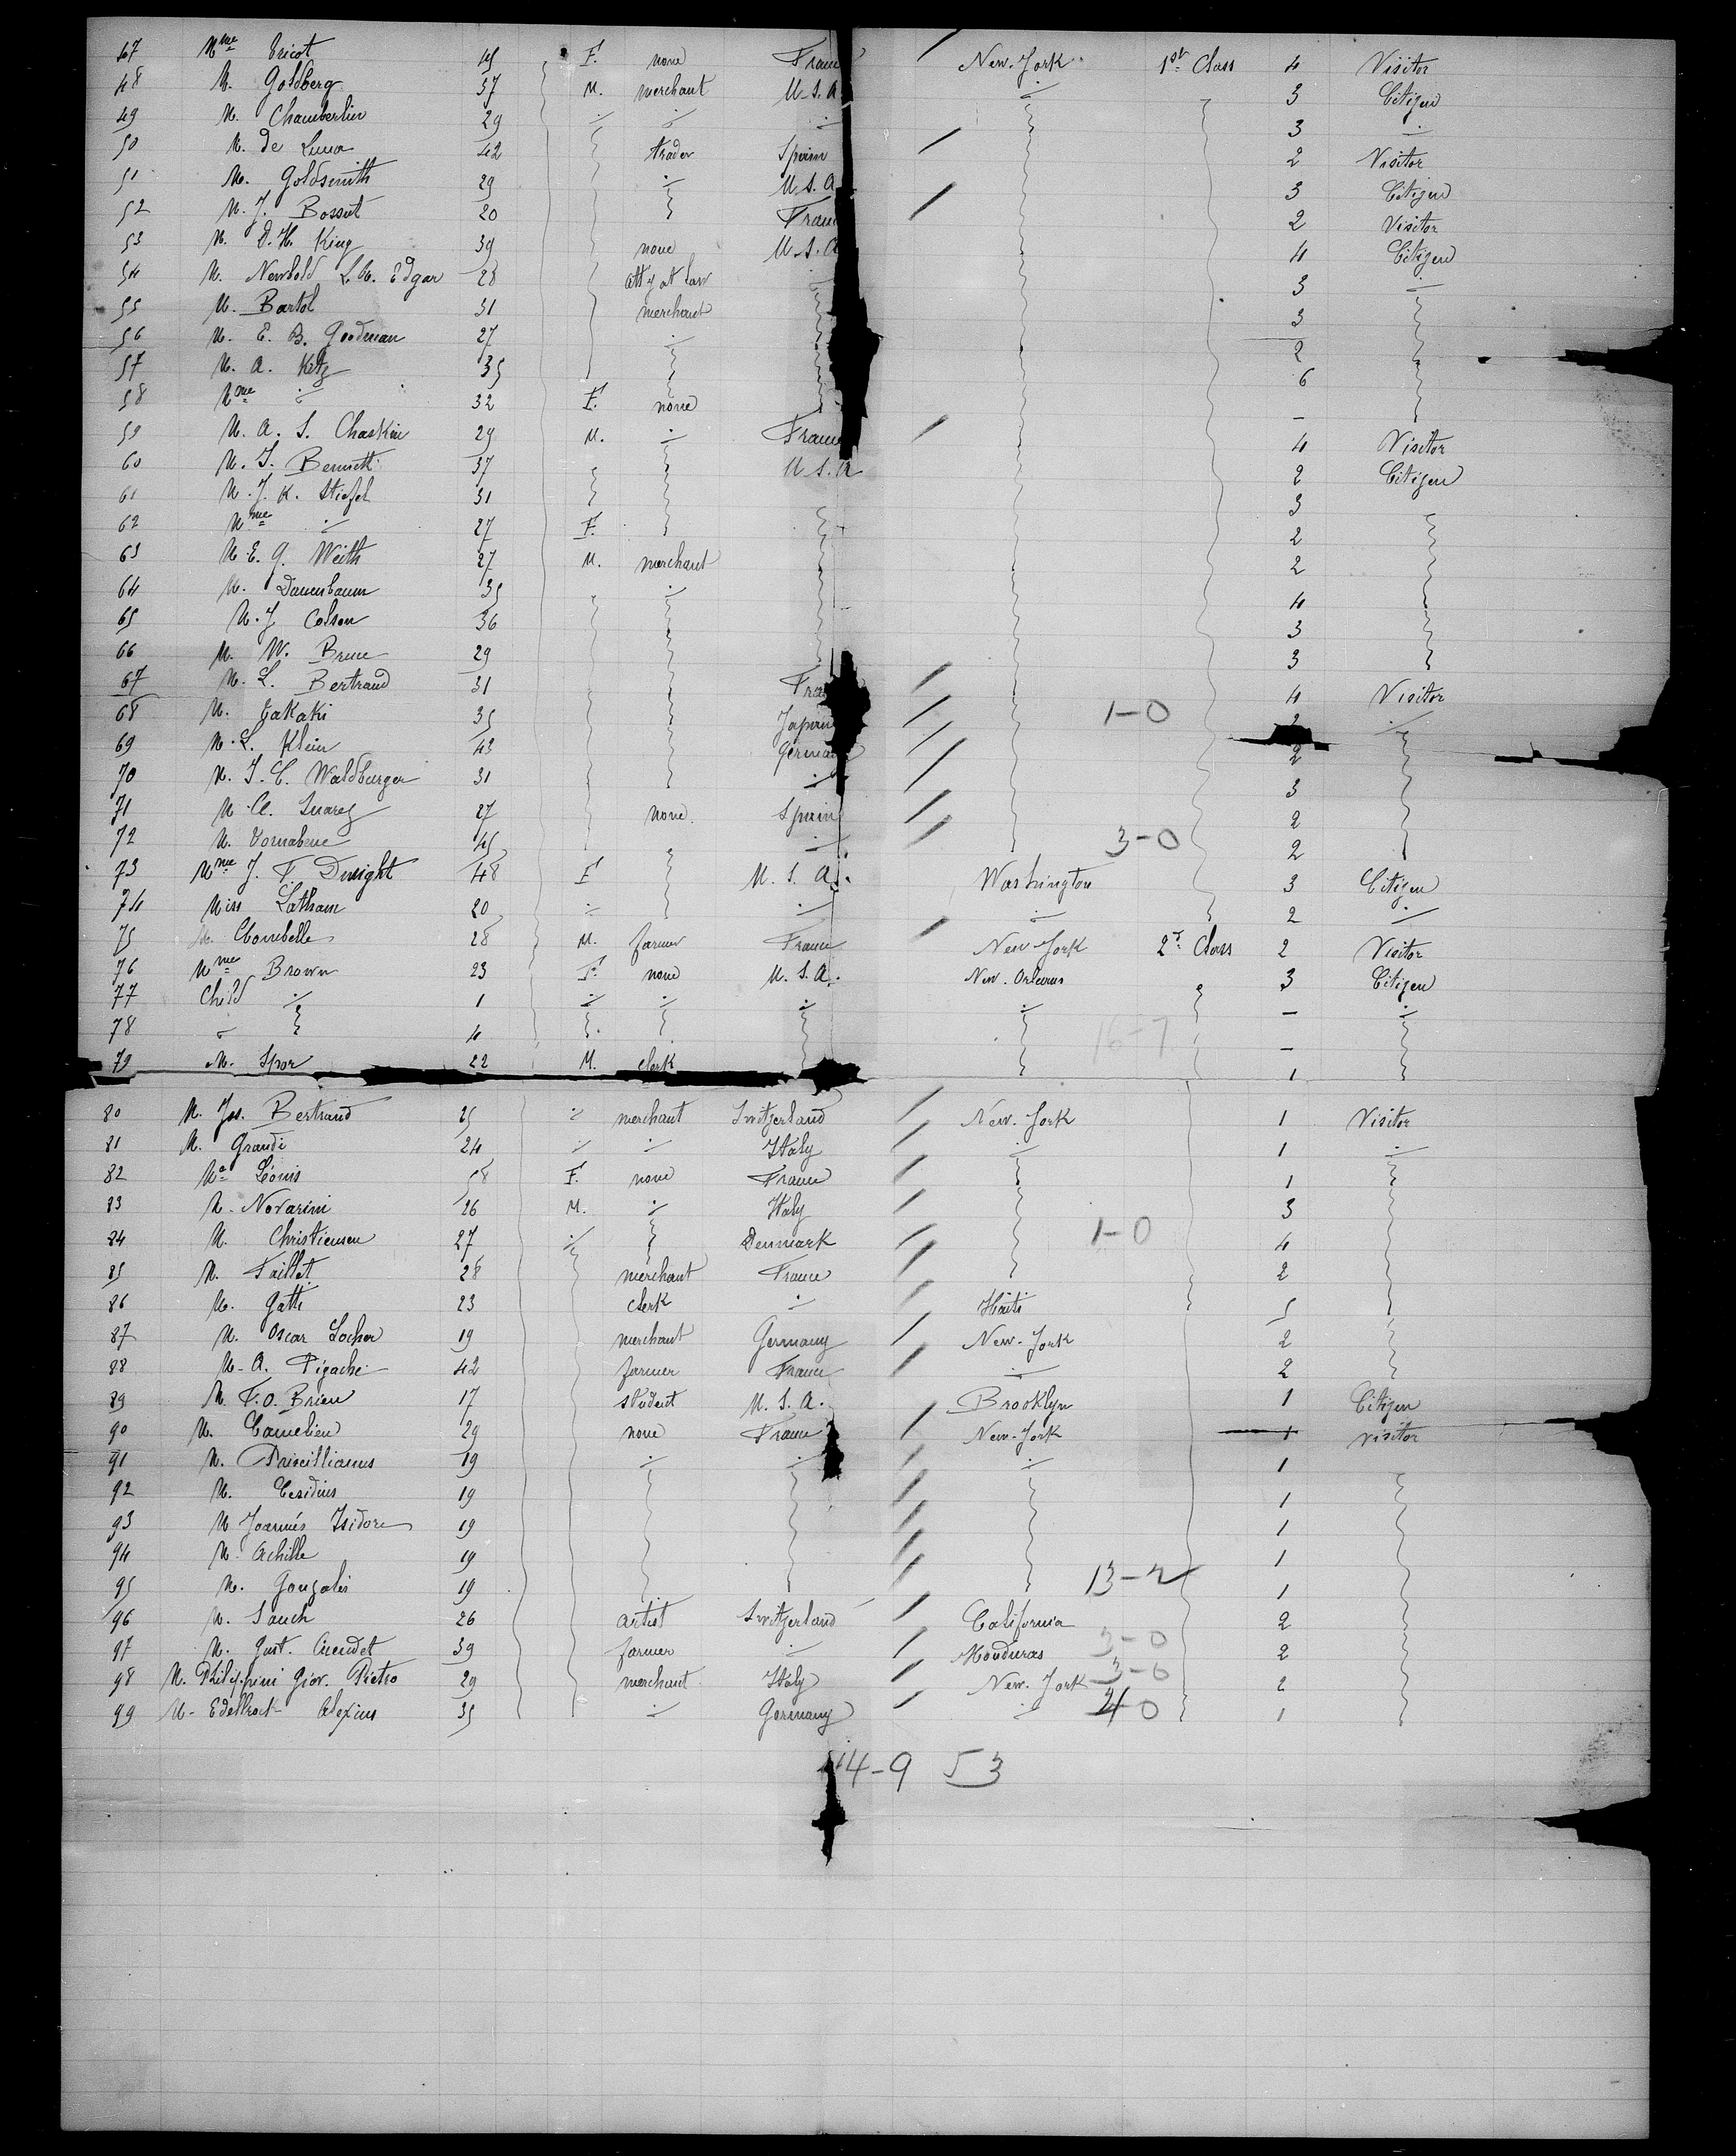 47 Mme Tricot 45 F. none France New-York 1st Class 4 Visitor
48 M. Goldberg 37 M. merchant U.S.A. 3 Citizen
49 M. Chamberlin 29 3
50 M. de Luna 42 trader Spain 2 Visitor
51 M. Goldsmith 29 U.S.A. 3 Citizen
52 M. J. Bossut 20 France 2 Visitor
53 M. D.H. King 39 none U.S.A. 4 Citizen
54 M. Newbold Edgar 28 att'y at law 3
55 M. Bartol 31 merchant 3
56 M. E. B. Goodman 27 2
57 M. A. Katz 35 6
58 Mme 32 F. none -
59 M. A. S. Chaskin 29 M. France 4 Visitor
60 M. J. Bennett 37 U.S.A 2 Citizen
61 M. J. K. Stiefel 31 3
62 Mme 27 F. 2
63 M. E. G. Weith 27 M. merchant 2
64 M. Dannbaum 35 4
65 M. J. Colson 36 3
66 M. W. Brune 29 3
67 M. L. Bertrand 31 France 4 Visitor
68 M. Takaki 35 Japan 1-0
69 M. L. Klein 43 German 2
70 M. J. C. Waldburger 31 3
71 M. A. Suarez 27 none. Spain 2
72 M. 45 3-0 2
73 Mme J. F. Dwight 48 F U.S.A. Washington 3 Citizen
74 Miss Latham 20 2
75 M. Combelle 28 M. farmer France New-York 2d Class 2 Visitor
76 Mme Brown 23 F. none U.S.A. New-Orleans 3 Citizen
77 Child 1 -
78 4 16-7 -
79 M. Spor 22 M. clerk 1
80 M. Jos. Bertrand 25 merchant Switzerland New-York 1 Visitor
81 M. Grandi 24 Italy 1
82 Léonis 58 F. none France 1
83 M. Novarini 26 M. Italy 3
84 M. Christiensen 27 Denmark 1-0 4
85 M. Faillet 28 merchant France 2
86 M. Gatti 23 clerk Haïti 5
87 M. Oscar Locher 19 merchant Germany New-York 2
88 M. A. Pigache 42 farmer France 2
89 M. F. O. Brien 17 student U.S.A. Brooklyn 1 Citizen
90 M. Camelien 29 none France New-York 1 Visitor
91 M. Priscillianus 19 1
92 M. Cesidius 19 1
93 M Joannès Isidore 19 1
94 M. Achille 19 1
95 M. Gonzalès 19 13-2 1
96 M. Sauch 26 artist Switzerland California 2
97 M. Gust. 39 farmer Honduras 3-0 2
98 M. Philippini Giov. Pietro 29 merchant Italy New-York 3-0 2
99 M. Edelbrock Alexius 35 Germany 4-0 1
14-9 53